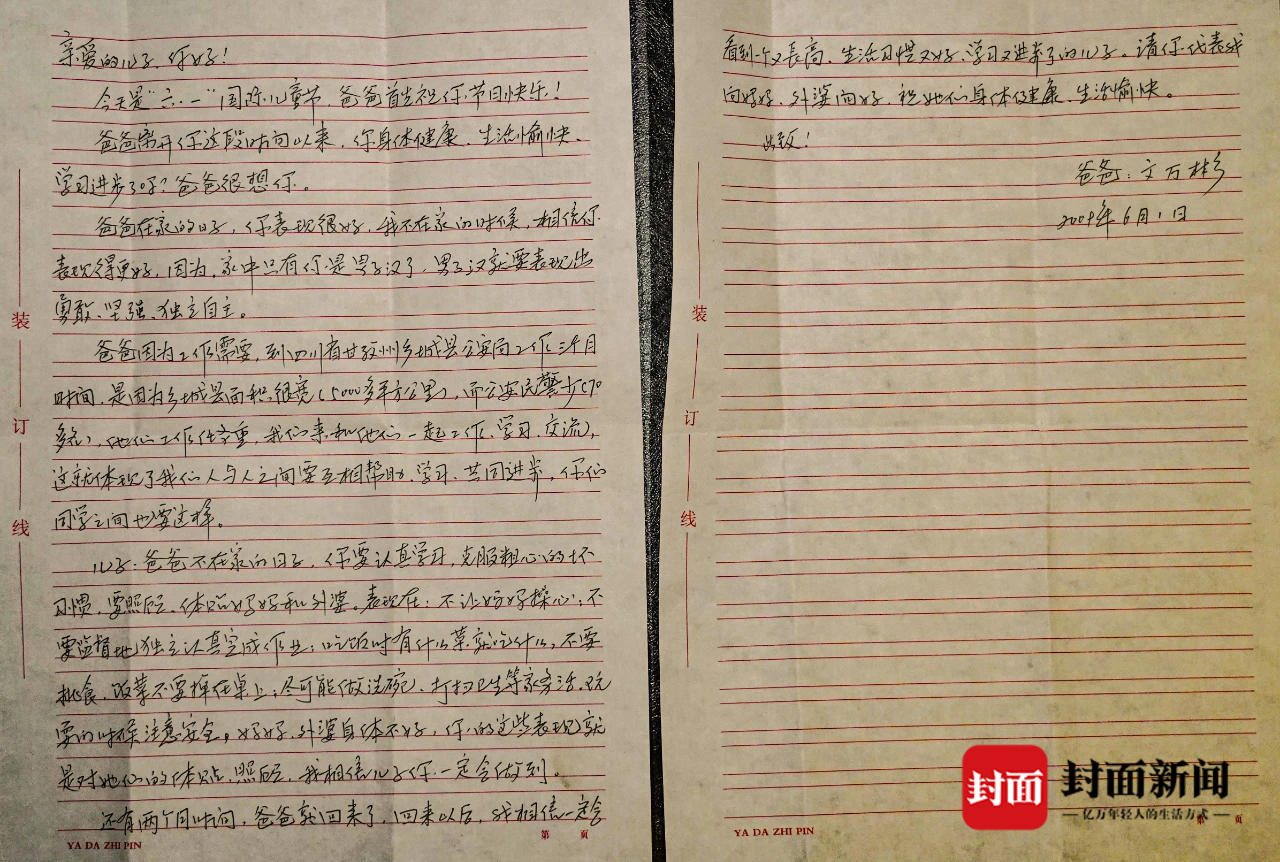 亲爱的儿子，你好！
今天是“六·一”国际儿童节，爸爸首先祝你节日快乐！
爸爸离开你这段时间以来，你身体健康、生活愉快、
学习进步了吗？爸爸很想你。
爸爸在家的日子，你表现很好，我不在家的时候，相信你
表现得更好，因为，家中只有你是男子汉了，男子汉就要表现出
勇敢、坚强、独立自主。
爸爸因为工作需要，到四川省甘孜州乡城县公安局工作三个月
时间，是因为乡城县面积很宽（5000多平方公里），而公安民警少（70
多名），他们工作任务重，我们来和他们一起工作、学习、交流，
这就体现了我们人与人之间要互相帮助、学习、共同进步，你们
同学之间也要这样。
儿子：爸爸不在家的日子，你要认真学习，克服粗心的坏
习惯，要照顾、体贴妈妈和外婆。表现在：不让妈妈操心；不
要监督地独立认真完成作业；吃饭时有什么菜就吃什么，不要
挑食，饭菜不要掉在桌上；尽可能做洗碗、打扫卫生等家务活，玩
耍的时候注意安全。妈妈、外婆身体不好，你的这些表现就
是对她们的体贴、照顾，我相信儿子你一定会做到。
还有两个月时间，爸爸就回来了，回来以后，我相信一定会
装
订
线
第 页
YA DA ZHI PIN
看到一个又长高、生活习惯又好、学习又进步了的儿子。请你代表我
向妈妈、外婆问好，祝她们身体健康、生活愉快。
此致！
爸爸：文万彬
2009年6月1日
装
订
线
YA DA ZHI PIN
第 页
封面
封面新闻
亿万年轻人的生活方式